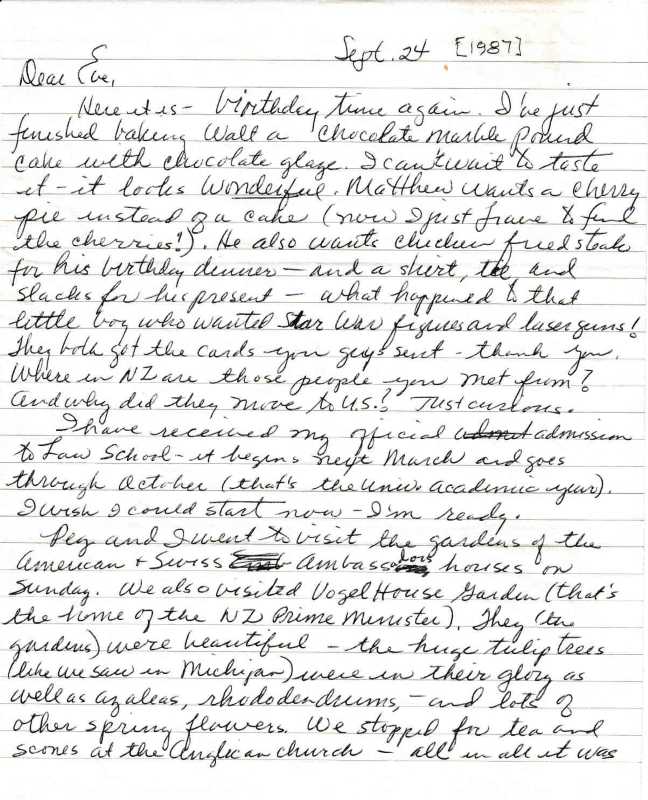 Sept. 24 [1987]
Dear Eve,
Here it is - birthday time again. I've just
finished baking Walt a chocolate marble pound
cake with chocolate glaze. I can't wait to taste
it - it looks wonderful. Matthew wants a cherry
pie instead of a cake (now I just have to find
the cherries!). He also wants chicken fried steak
for his birthday dinner - and a shirt, tie and
slacks for his present - what happened to that
little boy who wanted Star War figures and laser guns!
They both got the cards you guys sent - thank you.
Where in NZ are those people you met from?
And why did they move to U.S.? Just curious.
I have received my official admission
to Law School - it begins next March and goes
through October (that's the univ. academic year).
I wish I could start now - I'm ready.
Peg and I went to visit the gardens of the
American + Swiss Ambassadors houses on
Sunday. We also visited Vogel House Garden (that's
the home of the NZ Prime Minister). They (the
gardens) were beautiful - the huge tulip trees
(like we saw in Michigan) were in their glory as
well as azaleas, rhododendrums, - and lots of
other spring flowers. We stopped for tea and
scones at the Anglican church - all in all it was